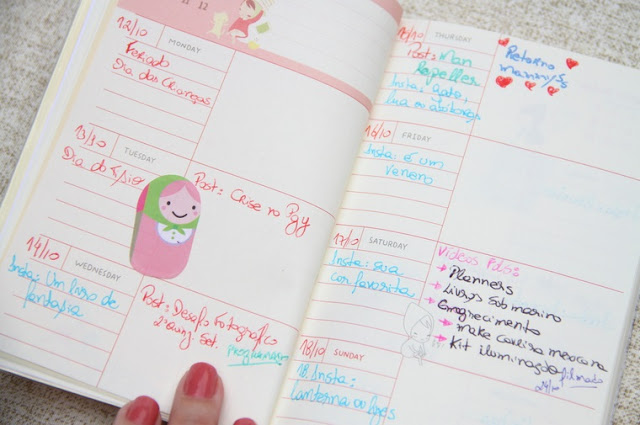 11 12
12/10
MONDAY
Feriado
Dia das Crianças
13/10
TUESDAY
Dia do
Post: Crise no
14/10
WEDNESDAY
Insta: Um livro de
fantasia
Post: Desafio Fotográfico
2ª quinz. Set.
Programar
15/10
THURSDAY
Post: Man
Repeller
Insta: gato,
lua ou
Retorno
16/10
FRIDAY
Insta: é um
veneno
17/10
SATURDAY
Insta: sua
cor favorita
Vídeos
Planners
Livros Submarino
make caveira mexicana
Kit iluminação
filmado
18/10
SUNDAY
18 Insta:
lanterna ou